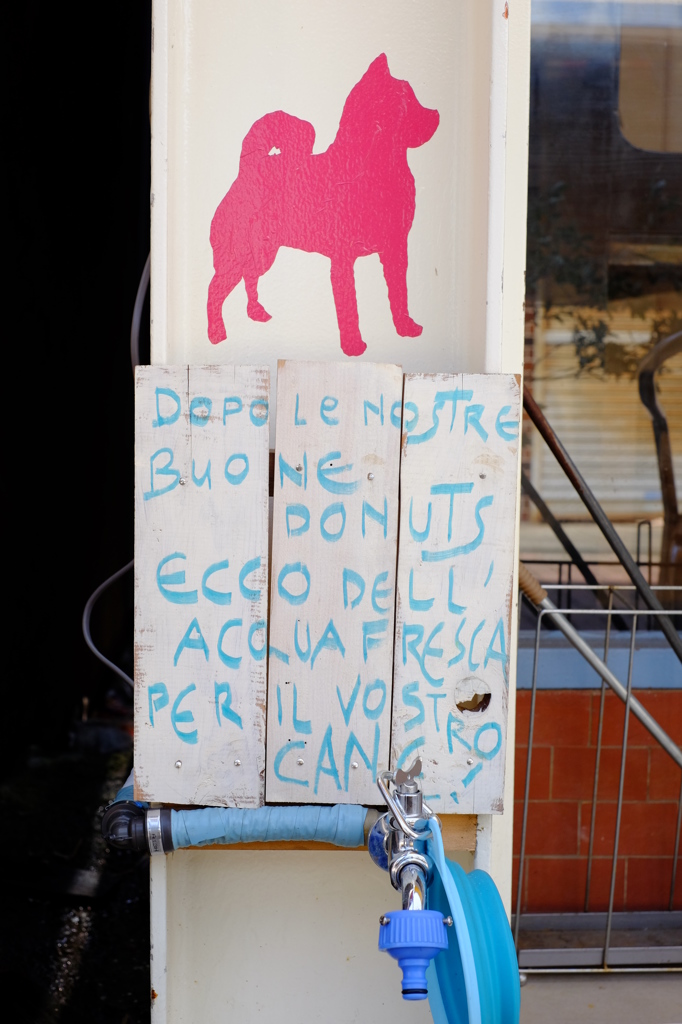 DOPO LE NOSTRE
BUONE
DONUTS
ECCO DELL'
ACQUA FRESCA
PER IL VOSTRO
CANE!